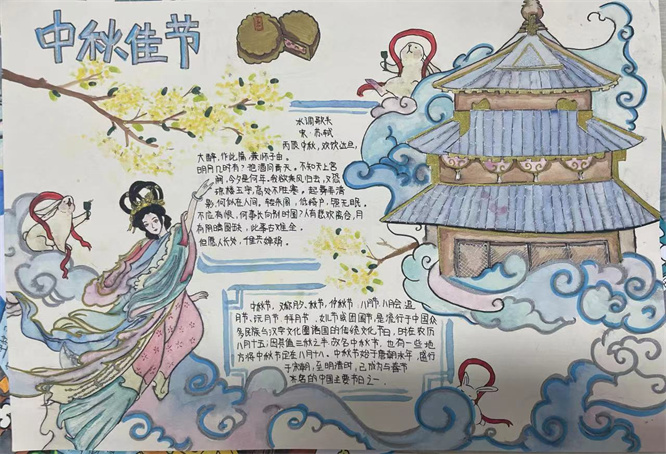 中秋佳节
水调歌头
宋·苏轼
丙辰中秋，欢饮达旦，
大醉，作此篇，兼怀子由。
明月几时有？把酒问青天。不知天上宫
阙，今夕是何年。我欲乘风归去，又恐
琼楼玉宇，高处不胜寒。起舞弄清
影，何似在人间。转朱阁，低绮户，照无眠。
不应有恨，何事长向别时圆？人有悲欢离合，月
有阴晴圆缺，此事古难全。
但愿人长久，千里共婵娟。
中秋节，又称月夕、秋节、仲秋节、八月节、八月会、追
月节、玩月节、拜月节、女儿节或团圆节，是流行于中国众
多民族与汉字文化圈诸国的传统文化节日，时在农历
八月十五；因其值三秋之半，故名中秋节，也有一些地
方将中秋节定在八月十六。中秋节始于唐朝初年，盛行
于宋朝，至明清时，已成为与春节
齐名的中国主要节日之一。